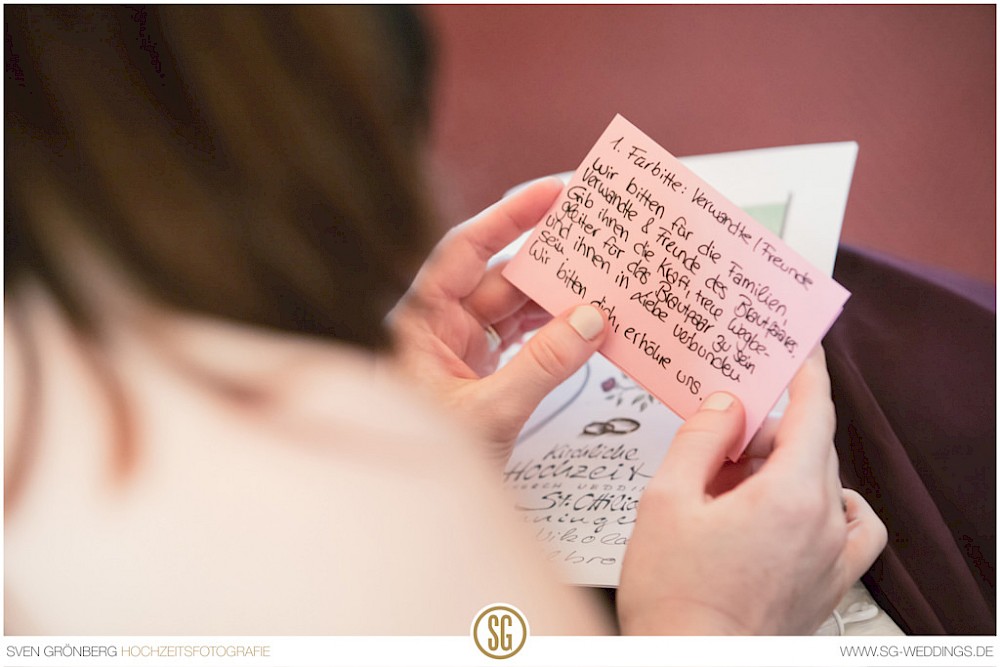 1. Fürbitte: Verwandte/Freunde
Wir bitten für die Familien,
Verwandte & Freunde des Brautpaares.
Gib ihnen die Kraft, treue Wegbe-
gleiter für das Brautpaar zu sein
und ihnen in Liebe verbunden
sein.
Wir bitten dich, erhöre uns.
Kirchliche
Hochzeit
CHURCH WEDDING
SG
SVEN GRÖNBERG HOCHZEITSFOTOGRAFIE
WWW.SG-WEDDINGS.DE